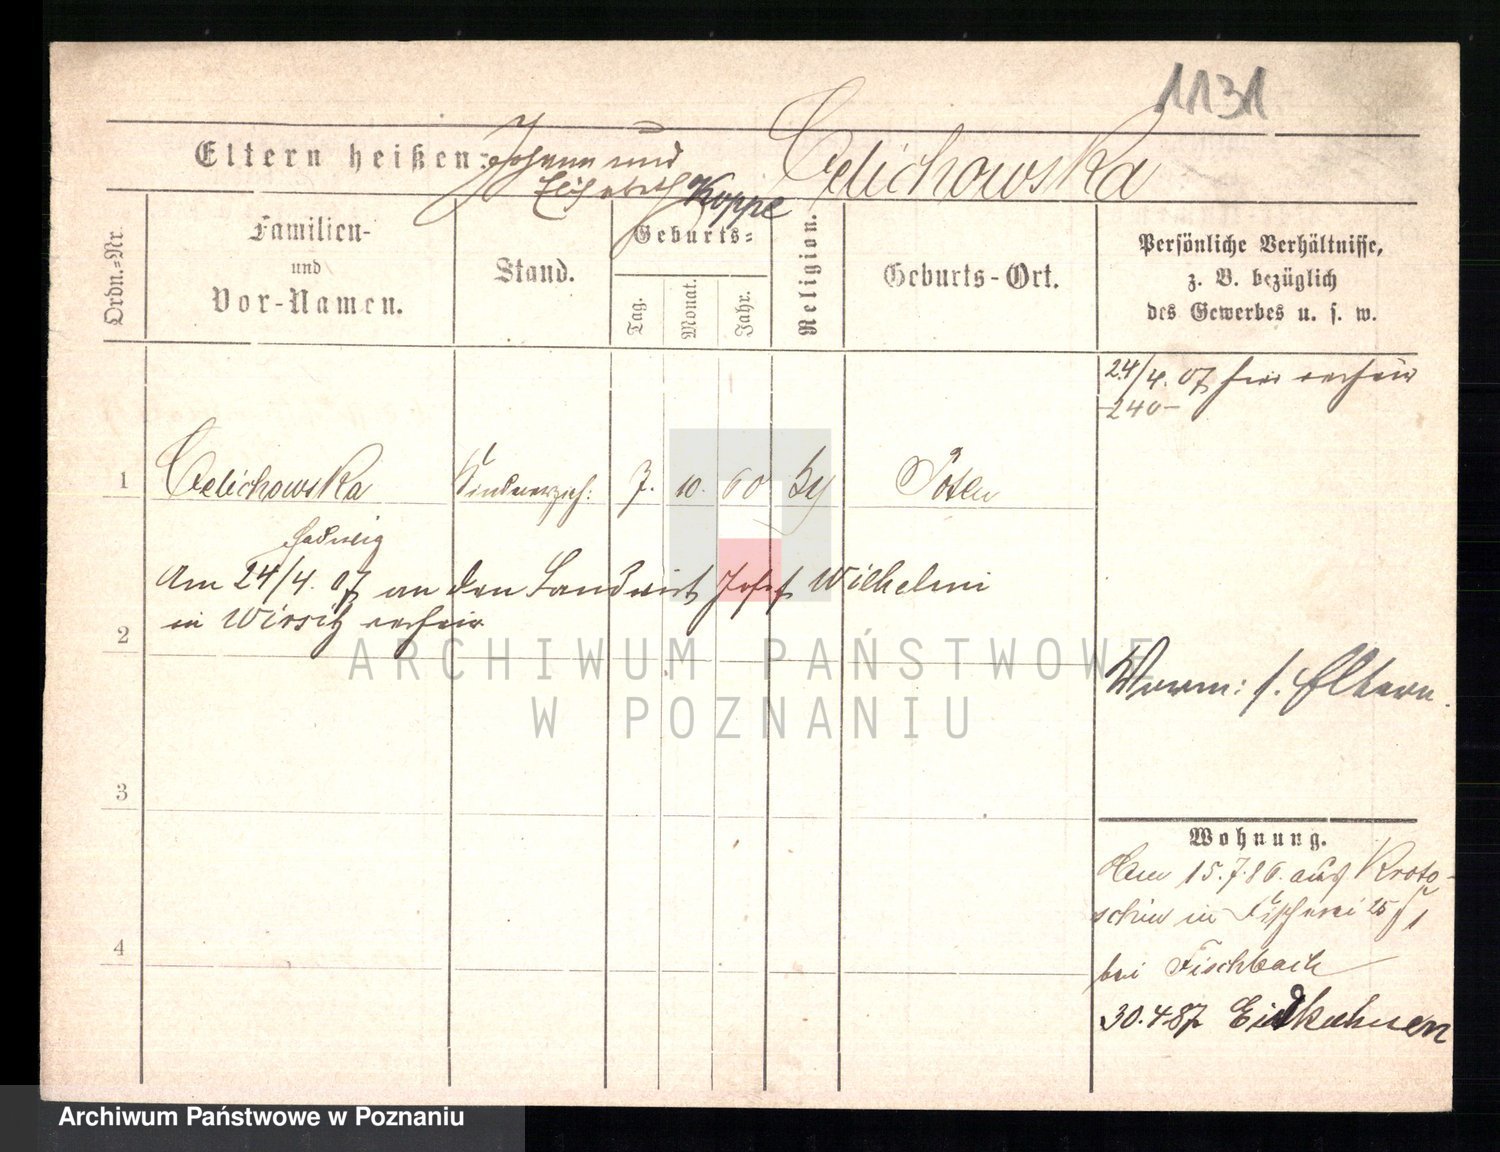 1131
Eltern heißen: Johann und
Elisabeth Koppe
Celichowska
Ordn.-Nr.
Familien-
und
Vor-Namen.
Stand.
Geburts-
Tag.
Monat.
Jahr.
Religion.
Geburts-Ort.
Persönliche Verhältnisse,
z. B. bezüglich
des Gewerbes u. s. w.
24/4. 07
-240-
1 Celichowska 7. 10. 60 Posen
Hedwig
Am 24/4. 07 an den Landwirt Josef Wilhelmi
in Wirsitz
2
ARCHIWUM PAŃSTWOWE
W POZNANIU
Verm: s. Eltern.
3
Wohnung.
Am 15.7.86. aus Kroto-
schin in Fischerei 25
bei Fischbach
4
30.4.87 Eidkuhnen
Archiwum Państwowe w Poznaniu